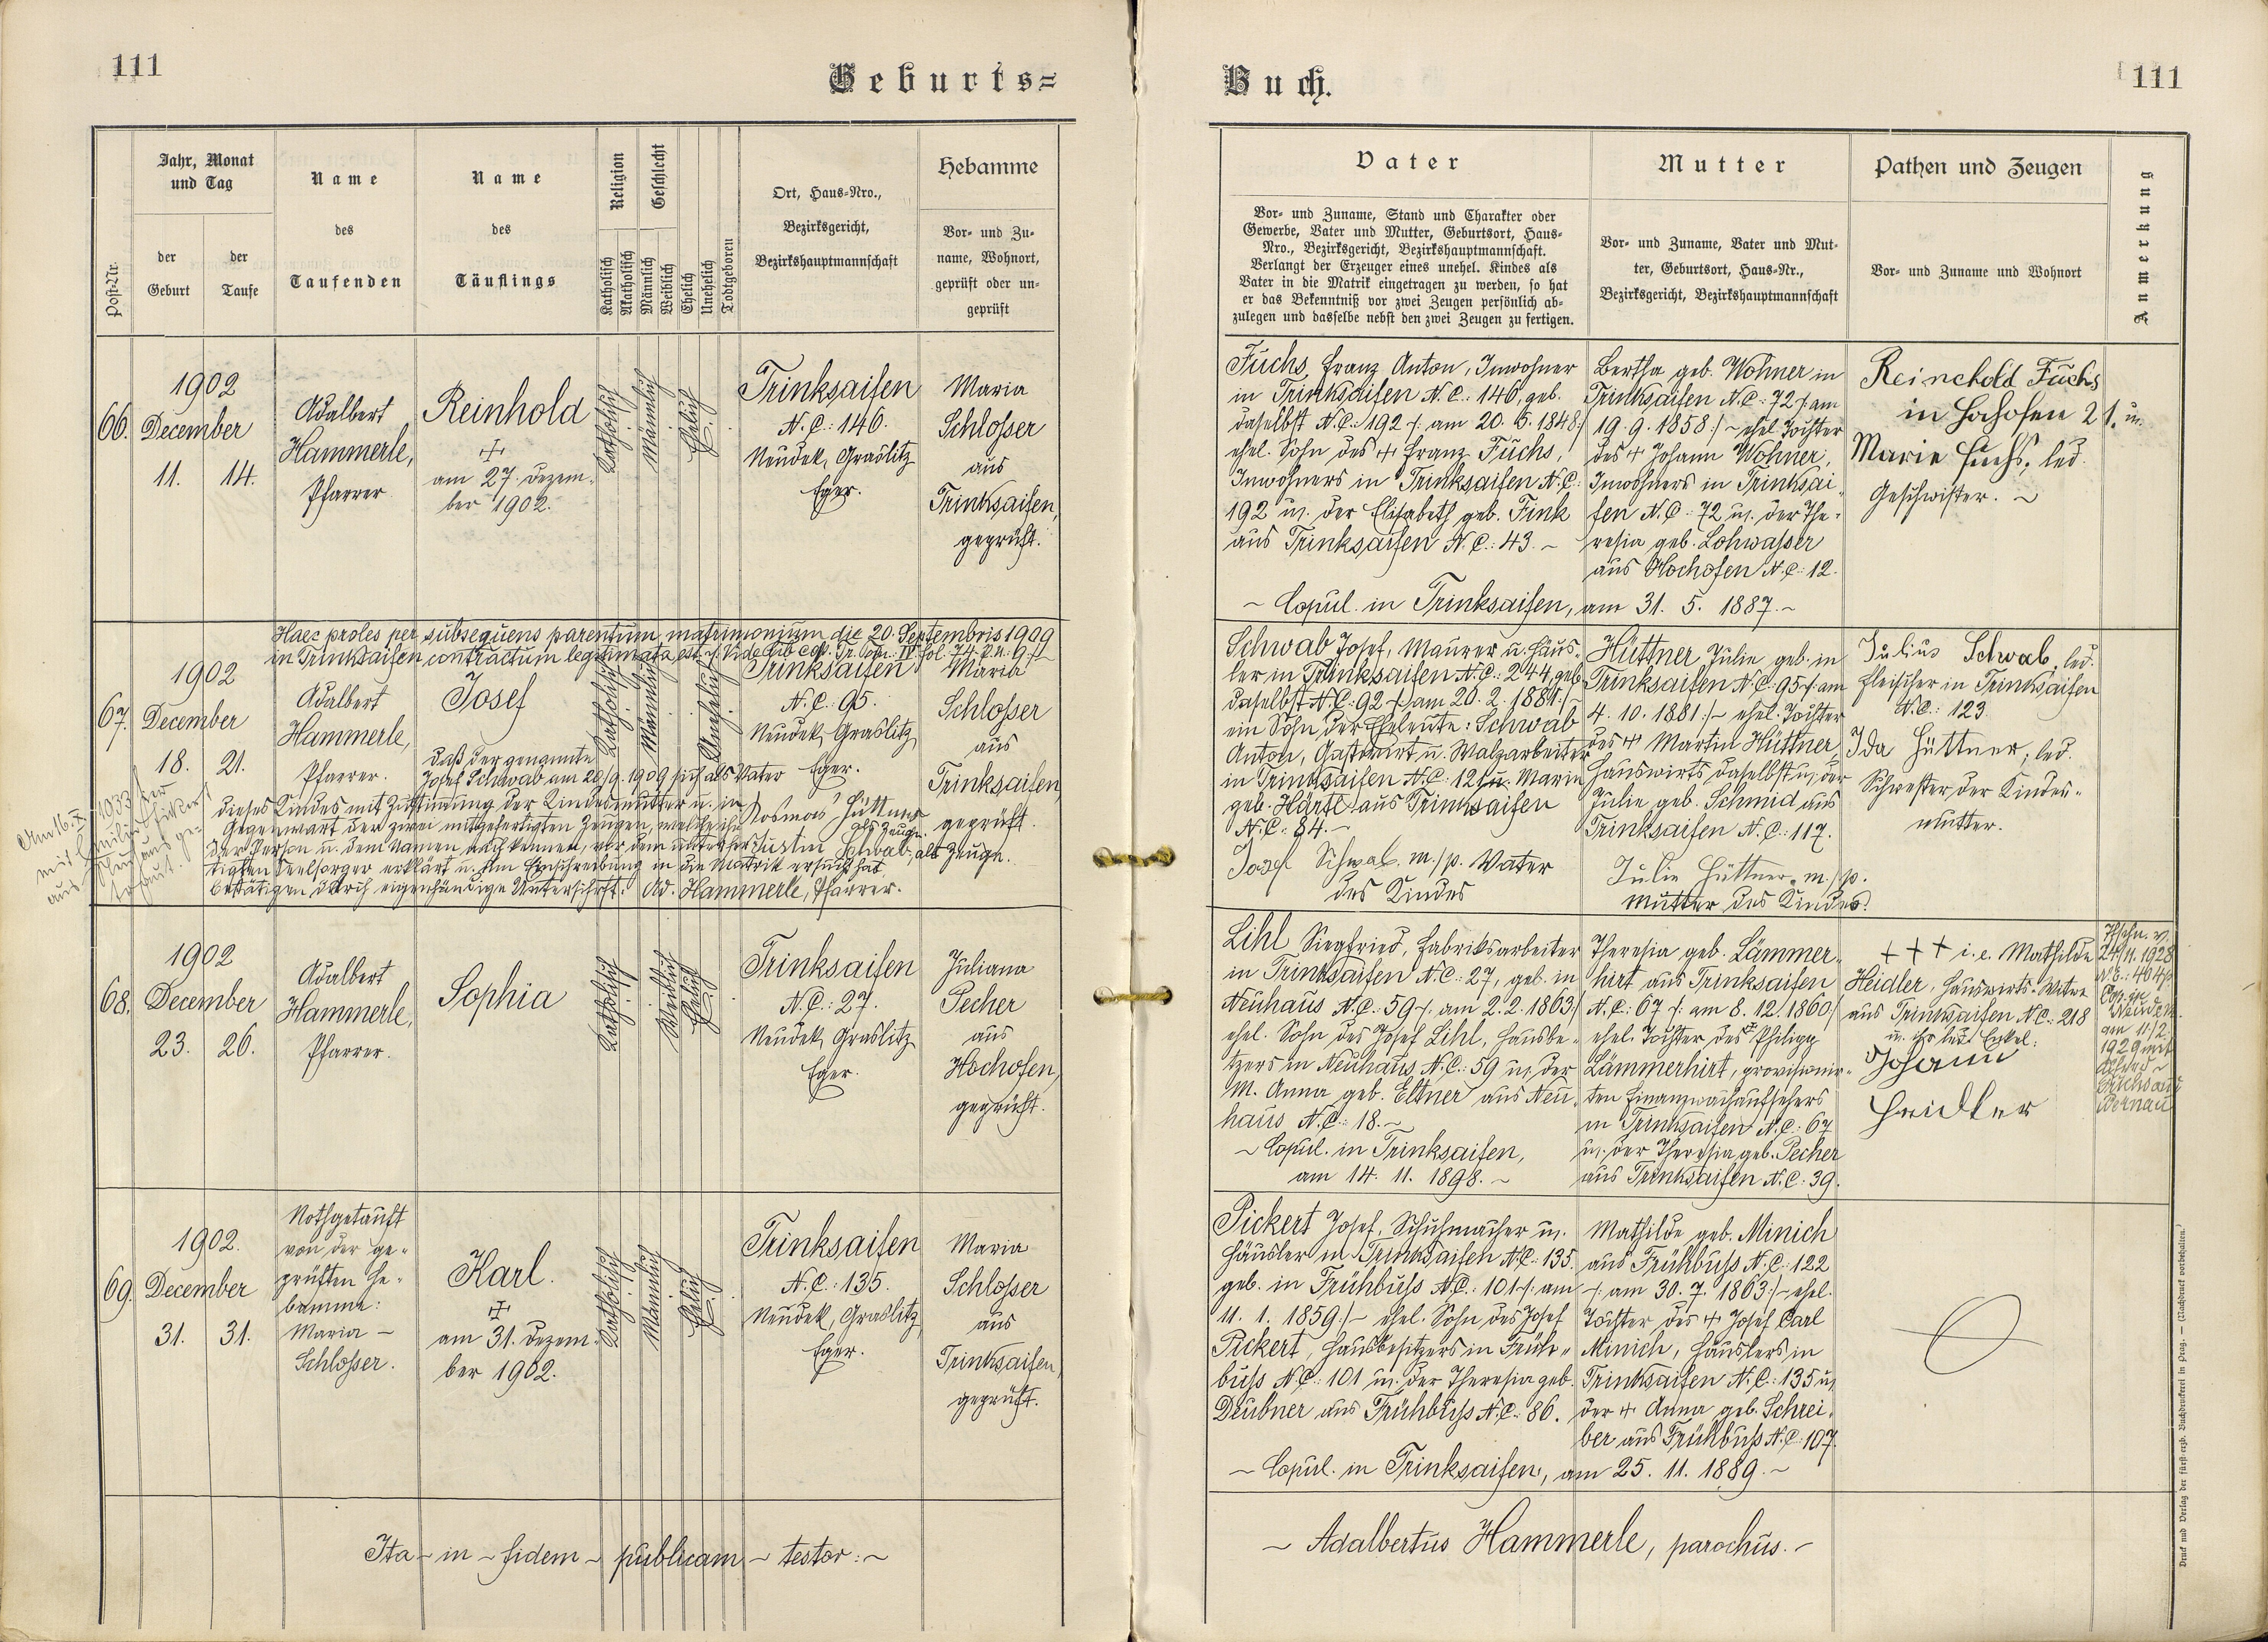 111
Geburts=
Jahr, Monat
und Tag
Post-Nr.
der
Geburt
der
Taufe
Name
des
Taufenden
Name
des
Täuflings
Religion
Katholisch
Akatholisch
Geschlecht
Männlich
Weiblich
Ehelich
Unehelich
Todtgeboren
Ort, Haus-Nro.,
Bezirksgericht,
Bezirkshauptmannschaft
Hebamme
Vor- und Zu-
name, Wohnort,
geprüft oder un-
geprüft
66.
1902
December
11. 14.
Adalbert
Hammerle,
Pfarrer
Reinhold
am 27. Dezem-
ber 1902.
Katholisch
Männlich
Ehelich
Trinksaifen
N.C.: 146.
Neudek, Graslitz
Eger.
Maria
Schlosser
aus
Trinksaifen,
geprüft.
Haec proles per subsequens parentum matrimonium die 20. Septembris 1909
in Trinksaifen contractum legitimata est
67.
1902
December
18. 21.
Adalbert
Hammerle,
Pfarrer.
Josef
Katholisch
Männlich
Unehelich
Trinksaifen
N.C.: 95.
Neudek, Graslitz
Eger.
Maria
Schlosser
aus
Trinksaifen,
geprüft.
Daß der genannte
Josef Schwab am 20/9. 1909 sich als Vater
dieses Kindes mit Zustimmung der Kindesmutter u. in
Gegenwart der zwei mitgefertigten Zeugen, welche ihn
der Person u. dem Namen nach kennen, vor dem unterfer-
tigten Seelsorger erklärt u. um Einschreibung in die Matrik ersucht hat,
bestätigen durch eigenhändige Unterschrift: Ad. Hammerle, Pfarrer.
Hüttner
als Zeuge.
Schwab, als Zeuge.
68.
1902
December
23. 26.
Adalbert
Hammerle,
Pfarrer.
Sophia
Katholisch
Weiblich
Ehelich
Trinksaifen
N.C.: 27.
Neudek, Graslitz
Eger.
Juliana
Pecher
aus
Hochofen,
geprüft.
69.
1902.
December
31. 31.
Nothgetauft
von der ge-
prüften He-
bamme:
Maria –
Schlosser.
Karl.
am 31. Dezem-
ber 1902.
Katholisch
Männlich
Ehelich
Trinksaifen
N.C.: 135.
Neudek, Graslitz
Eger.
Maria
Schlosser
aus
Trinksaifen,
geprüft.
Ita – in – fidem – publicam – testor: ~
Buch.
111
Vater
Vor- und Zuname, Stand und Charakter oder
Gewerbe, Vater und Mutter, Geburtsort, Haus-
Nro., Bezirksgericht, Bezirkshauptmannschaft.
Verlangt der Erzeuger eines unehel. Kindes als
Vater in die Matrik eingetragen zu werden, so hat
er das Bekenntniß vor zwei Zeugen persönlich ab-
zulegen und dasselbe nebst den zwei Zeugen zu fertigen.
Mutter
Vor- und Zuname, Vater und Mut-
ter, Geburtsort, Haus-Nr.,
Bezirksgericht, Bezirkshauptmannschaft
Pathen und Zeugen
Vor- und Zuname und Wohnort
Anmerkung
Fuchs, Franz Anton, Inwohner
in Trinksaifen N.C.: 146, geb.
daselbst N.C.: 192 /: am 20. 5. 1848 :/
ehel. Sohn des + Franz Fuchs,
Inwohners in Trinksaifen N.C.:
192 u. der Elisabeth geb. Fink
aus Trinksaifen N.C.: 43. ~
Bertha geb. Wohner in
Trinksaifen N.C.: 72 /: am
19. 9. 1858 :/ ~ ehel. Tochter
des + Johann Wohner,
Inwohners in Trinksai-
fen N.C.: 72 u. der The-
resia geb. Lohwasser
aus Hochofen N.C.: 12.
~ Copul. in Trinksaifen, am 31. 5. 1887. ~
Reinchold Fuchs
in Hohofen 21. u.
Marie Fuchs, led.
Geschwister. ~
Schwab Josef, Maurer u. Häus-
ler in Trinksaifen N.C.: 244, geb.
daselbst N.C.: 92 /: am 20. 2. 1881 :/
ein Sohn der Eheleute: Schwab
Anton, Gastwirt u. Walzarbeiter
in Trinksaifen N.C.: 121 u. Maria
geb. Härtl aus Trinksaifen
N.C.: 84. ~
Josef Schwab m./p. Vater
des Kindes
Hüttner Julie geb. in
Trinksaifen N.C.: 95 /: am
4. 10. 1881 :/ ~ ehel. Tochter
des + Martin Hüttner,
Hauswirts daselbst u. der
Julie geb. Schmid aus
Trinksaifen N.C.: 117.
Julie Hüttner m./p.
Mutter des Kindes.
Julius Schwab, led.
Fleischer in Trinksaifen
N.C.: 123
Ida Hüttner, led.
Schwester der Kindes-
mutter.
Lihl Siegfried, Fabriksarbeiter
in Trinksaifen N.C.: 27, geb. in
Neuhaus N.C.: 59 /: am 2. 2. 1863 :/
ehel. Sohn des Josef Lihl, Hausbe-
tzers in Neuhaus N.C.: 59 u. der
M. Anna geb. Eltner aus Neu-
haus N.C.: 18. ~
~ Copul. in Trinksaifen,
am 14. 11. 1898. ~
Theresia geb. Lämmer-
hirt aus Trinksaifen
N.C.: 67 /: am 8. 12. 1860 :/
ehel. Tochter des + Philipp
Lämmerhirt, provisionir-
ten Finanzwachaufsehers
in Trinksaifen N.C.: 67
u. der Theresia geb. Pecher
aus Trinksaifen N.C.: 39.
+++ i.e. Mathilde
Heidler, Hauswirts-Witwe
aus Trinksaifen N.C.: 218
u. ihr led. Enkel:
Johann
Heidler
24/11. 1928
am 11/2.
1929 mit
Pickert Josef, Schuhmacher u.
Häusler in Trinksaifen N.C.: 135.
geb. in Frühbuss N.C.: 101 /: am
11. 1. 1859 :/ ~ ehel. Sohn des Josef
Pickert, Hausbesitzers in Früh-
buss N.C.: 101 u. der Theresia geb.
Deubner aus Frühbuss N.C.: 86.
Mathilde geb. Minich
aus Frühbuss N.C.: 122
/: am 30. 7. 1863 :/ ~ ehel.
Tochter des + Josef Carl
Minich, Häuslers in
Trinksaifen N.C.: 135 u.
der + Anna geb. Schrei-
ber aus Frühbuss N.C.: 107.
~ Copul. in Trinksaifen, am 25. 11. 1889. ~
~ Adalbertus Hammerle, parochus. ~
Druck und Verlag der fürst-erzb. Buchdruckerei in Prag. — (Nachdruck vorbehalten.)